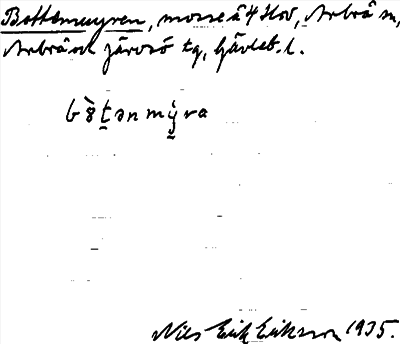 Bottenmyren, mosse å 4 Hov, Arbrå sn,
Arbrå och Järvsö tg, Gävleb. l.
Nils Erik Eriksson 1935.